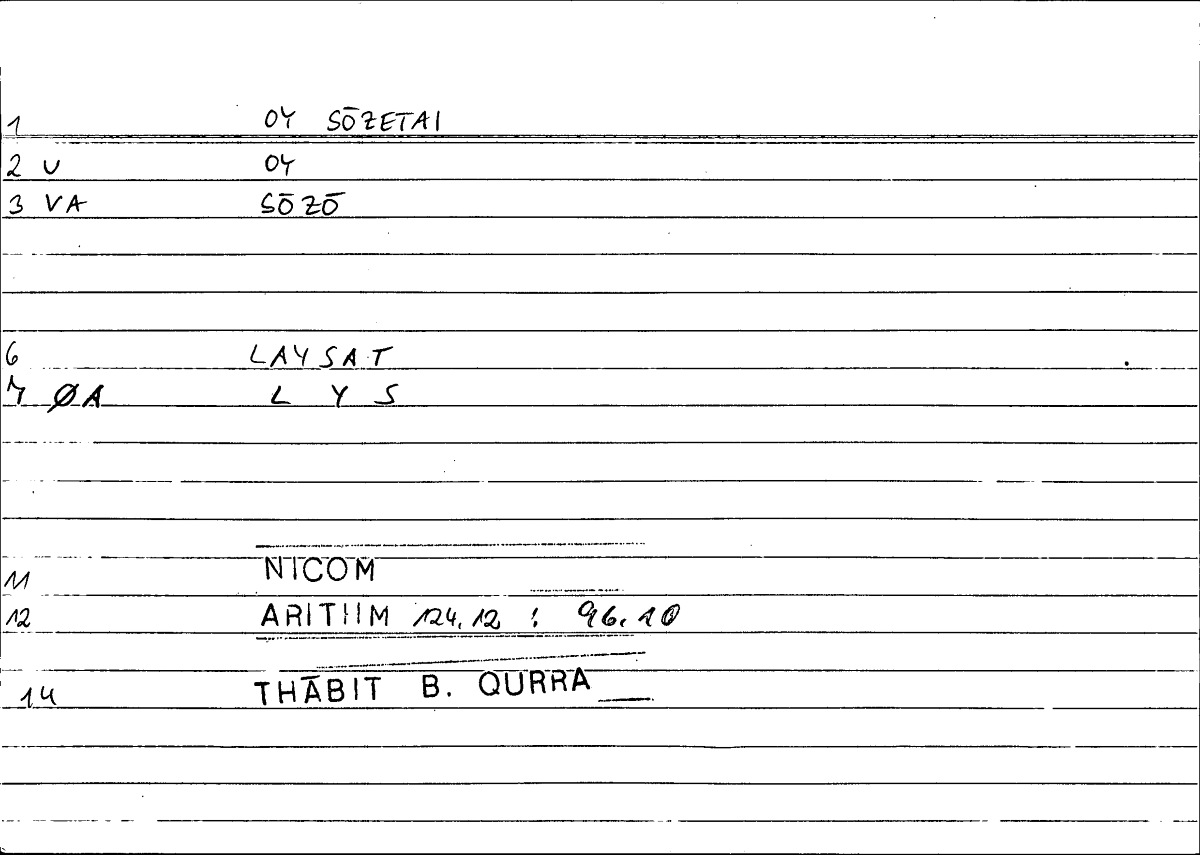 1 OY SŌZETAI
2 U OY
3 VA SŌZŌ
6 LAYSAT
7 ØA L Y S
11 NICOM
12 ARITHM 124.12 : 96.10
14 THĀBIT B. QURRA